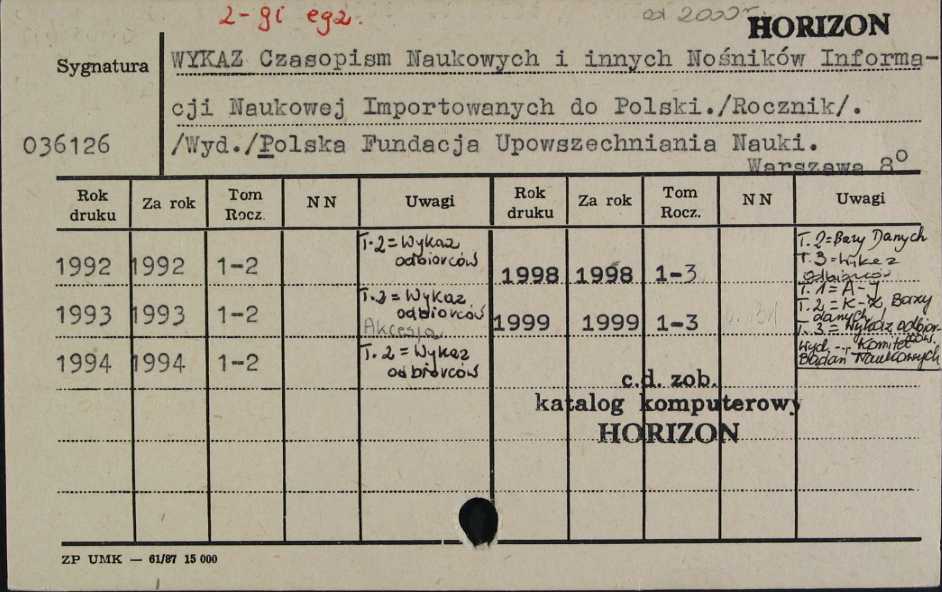 2-gi egz.
od 2000 r.
HORIZON
Sygnatura
036126
WYKAZ Czasopism Naukowych i innych Nośników Informa-
cji Naukowej Importowanych do Polski./Rocznik/.
/Wyd./Polska Fundacja Upowszechniania Nauki.
Warszawa 8°
Rok druku Za rok Tom Rocz. NN Uwagi Rok druku Za rok Tom Rocz. NN Uwagi
1992 1992 1-2 T.2 = Wykaz
odbiorców
1993 1993 1-2 T.2 = Wykaz
odbiorców
Akcesja
1994 1994 1-2 T.2 = Wykaz
odbiorców
1998 1998 1-3 T.2 = Bazy Danych
T.3 = Wykaz
odbiorców
1999 1999 1-3 T.1 = A-J
T.2 = K-Z, Bazy
danych
T.3 = Wykaz odbior-
ców.
Wyd. - Komitet
Badań Naukowych
c.d. zob.
katalog komputerowy
HORIZON
ZP UMK — 61/87 15 000